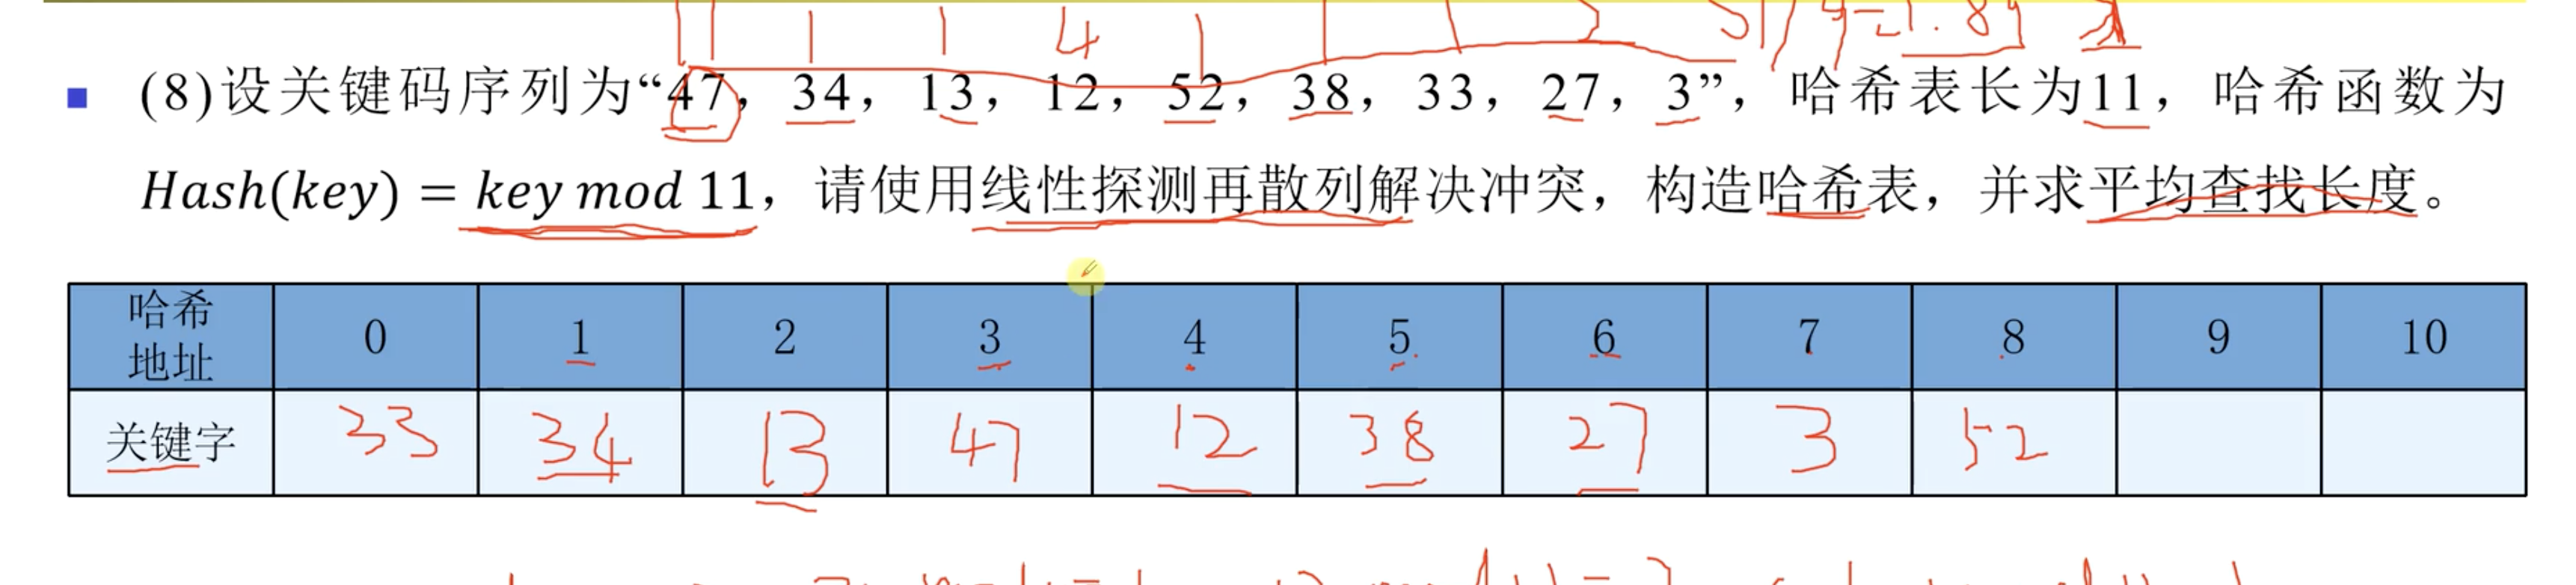 1 1 4 1
■ (8)设关键码序列为“47, 34, 13, 12, 52, 38, 33, 27, 3”, 哈希表长为11, 哈希函数为
Hash(key) = key mod 11, 请使用线性探测再散列解决冲突, 构造哈希表, 并求平均查找长度。
哈希地址 0 1 2 3 4 5 6 7 8 9 10
关键字 33 34 13 47 12 38 27 3 52